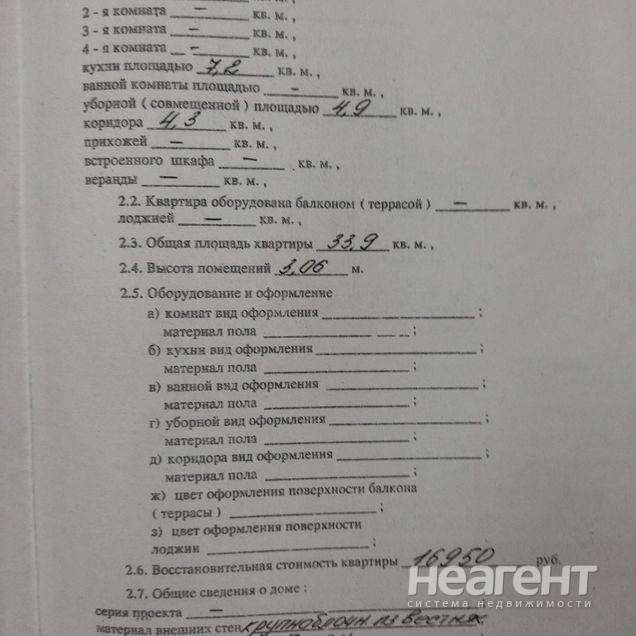 2 - я комната — кв. м. ,
3 - я комната — кв. м. ,
4 - я комната — кв. м. ,
кухни площадью 7,2 кв. м. ,
ванной комнаты площадью — кв. м. ,
уборной ( совмещенной ) площадью 4,9 кв. м. ,
коридора 4,3 кв. м. ,
прихожей — кв. м. ,
встроенного шкафа — кв. м. ,
веранды — кв. м. ,
2.2. Квартира оборудована балконом ( террасой ) — кв. м. ,
лоджией — кв. м. ,
2.3. Общая площадь квартиры 33,9 кв. м. ,
2.4. Высота помещений 3,06 м.
2.5. Оборудование и оформление
а) комнат вид оформления ;
материал пола ;
б) кухни вид оформления ;
материал пола ;
в) ванной вид оформления ;
материал пола ;
г) уборной вид оформления ;
материал пола ;
д) коридора вид оформления ;
материал пола ;
ж) цвет оформления поверхности балкона
( террасы ) ;
з) цвет оформления поверхности
лоджии ;
2.6. Восстановительная стоимость квартиры 16950 руб.
2.7. Общие сведения о доме :
серия проекта —
материал внешних стен крупноблочн.
Неагент
система недвижимости